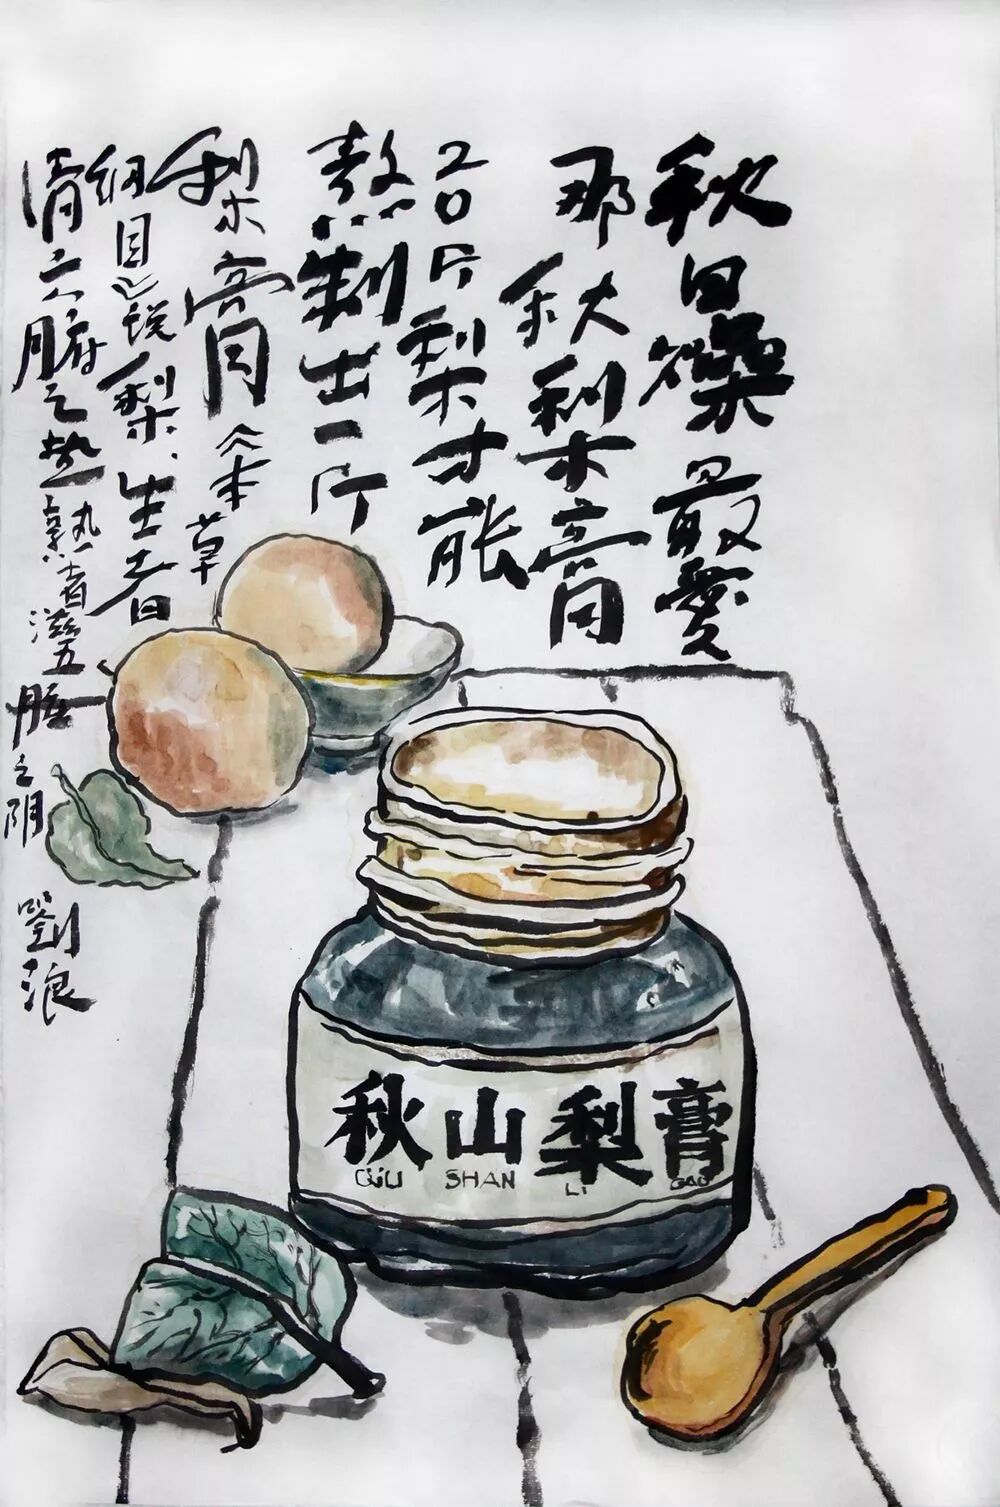 秋日燥最爱
那秋梨膏
20斤梨才能
熬制出一斤
梨膏《本草
纲目》说梨、生者
清六腑之热熟者滋五腑之阴
劉浪
秋山梨膏
QIU SHAN LI GAO